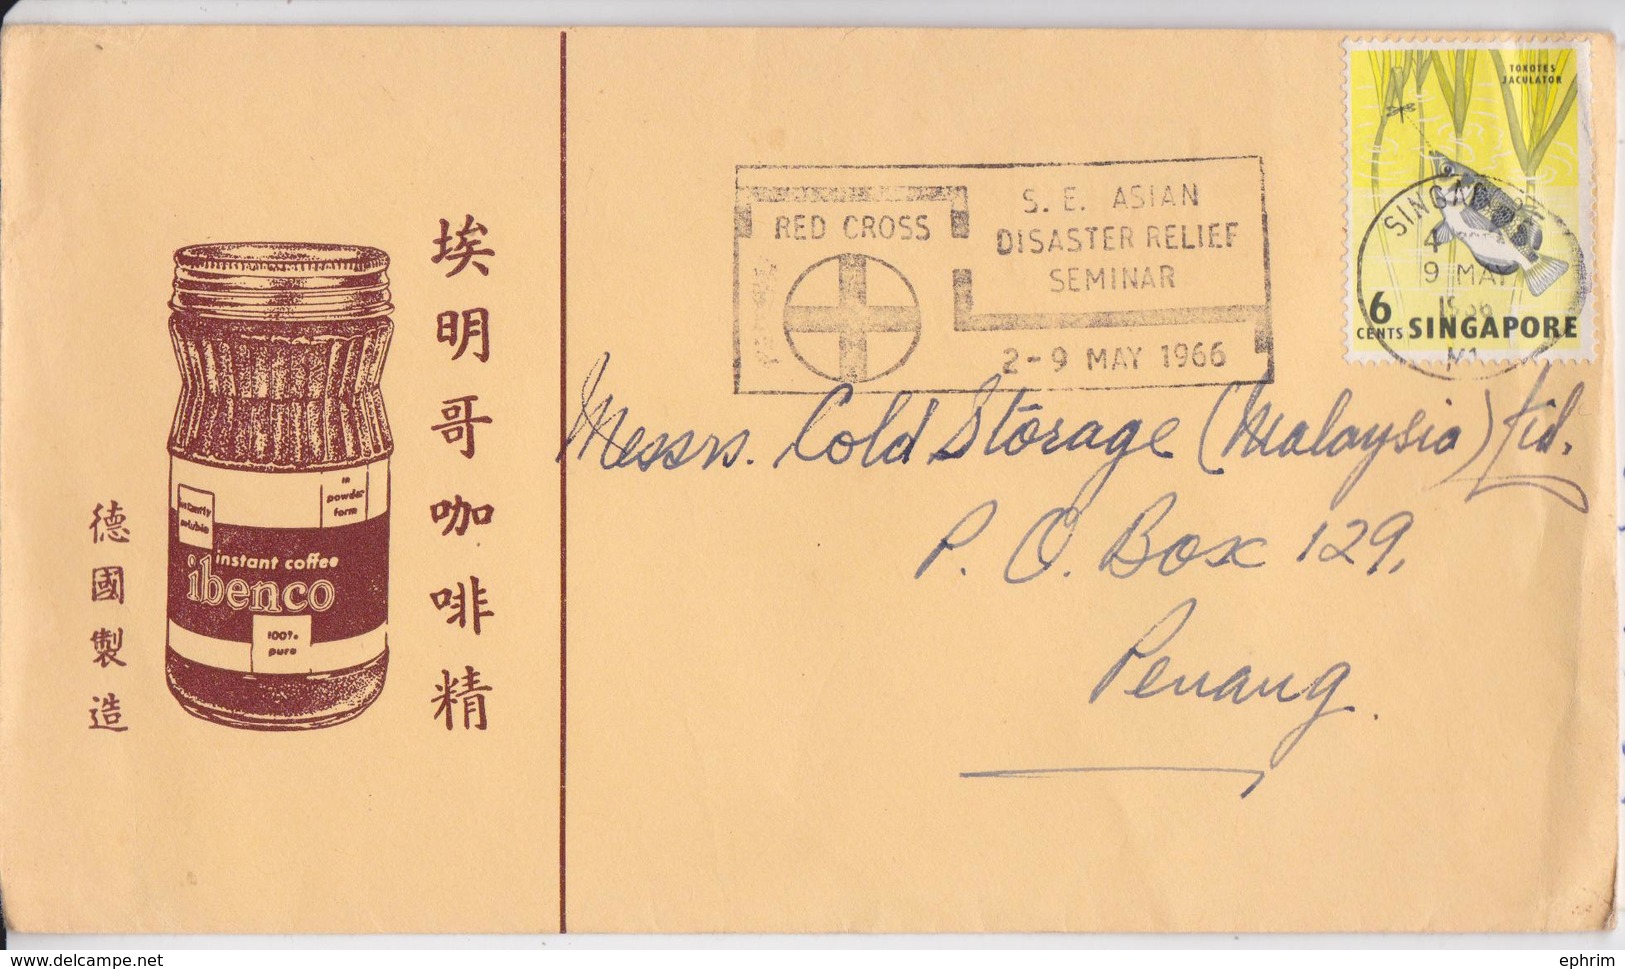 埃明哥咖啡精
德國製造
in
powder
form
instantly
soluble
instant coffee
ibenco
100%
pure
RED CROSS
S. E. ASIAN
DISASTER RELIEF
SEMINAR
2-9 MAY 1966
TOXOTES
JACULATOR
SINGAPORE
4
9 MAY
1966
6
CENTS SINGAPORE
Messrs. Cold Storage (Malaysia) Ltd.
P. O. Box 129,
Penang.
www.delcampe.net
ephrim